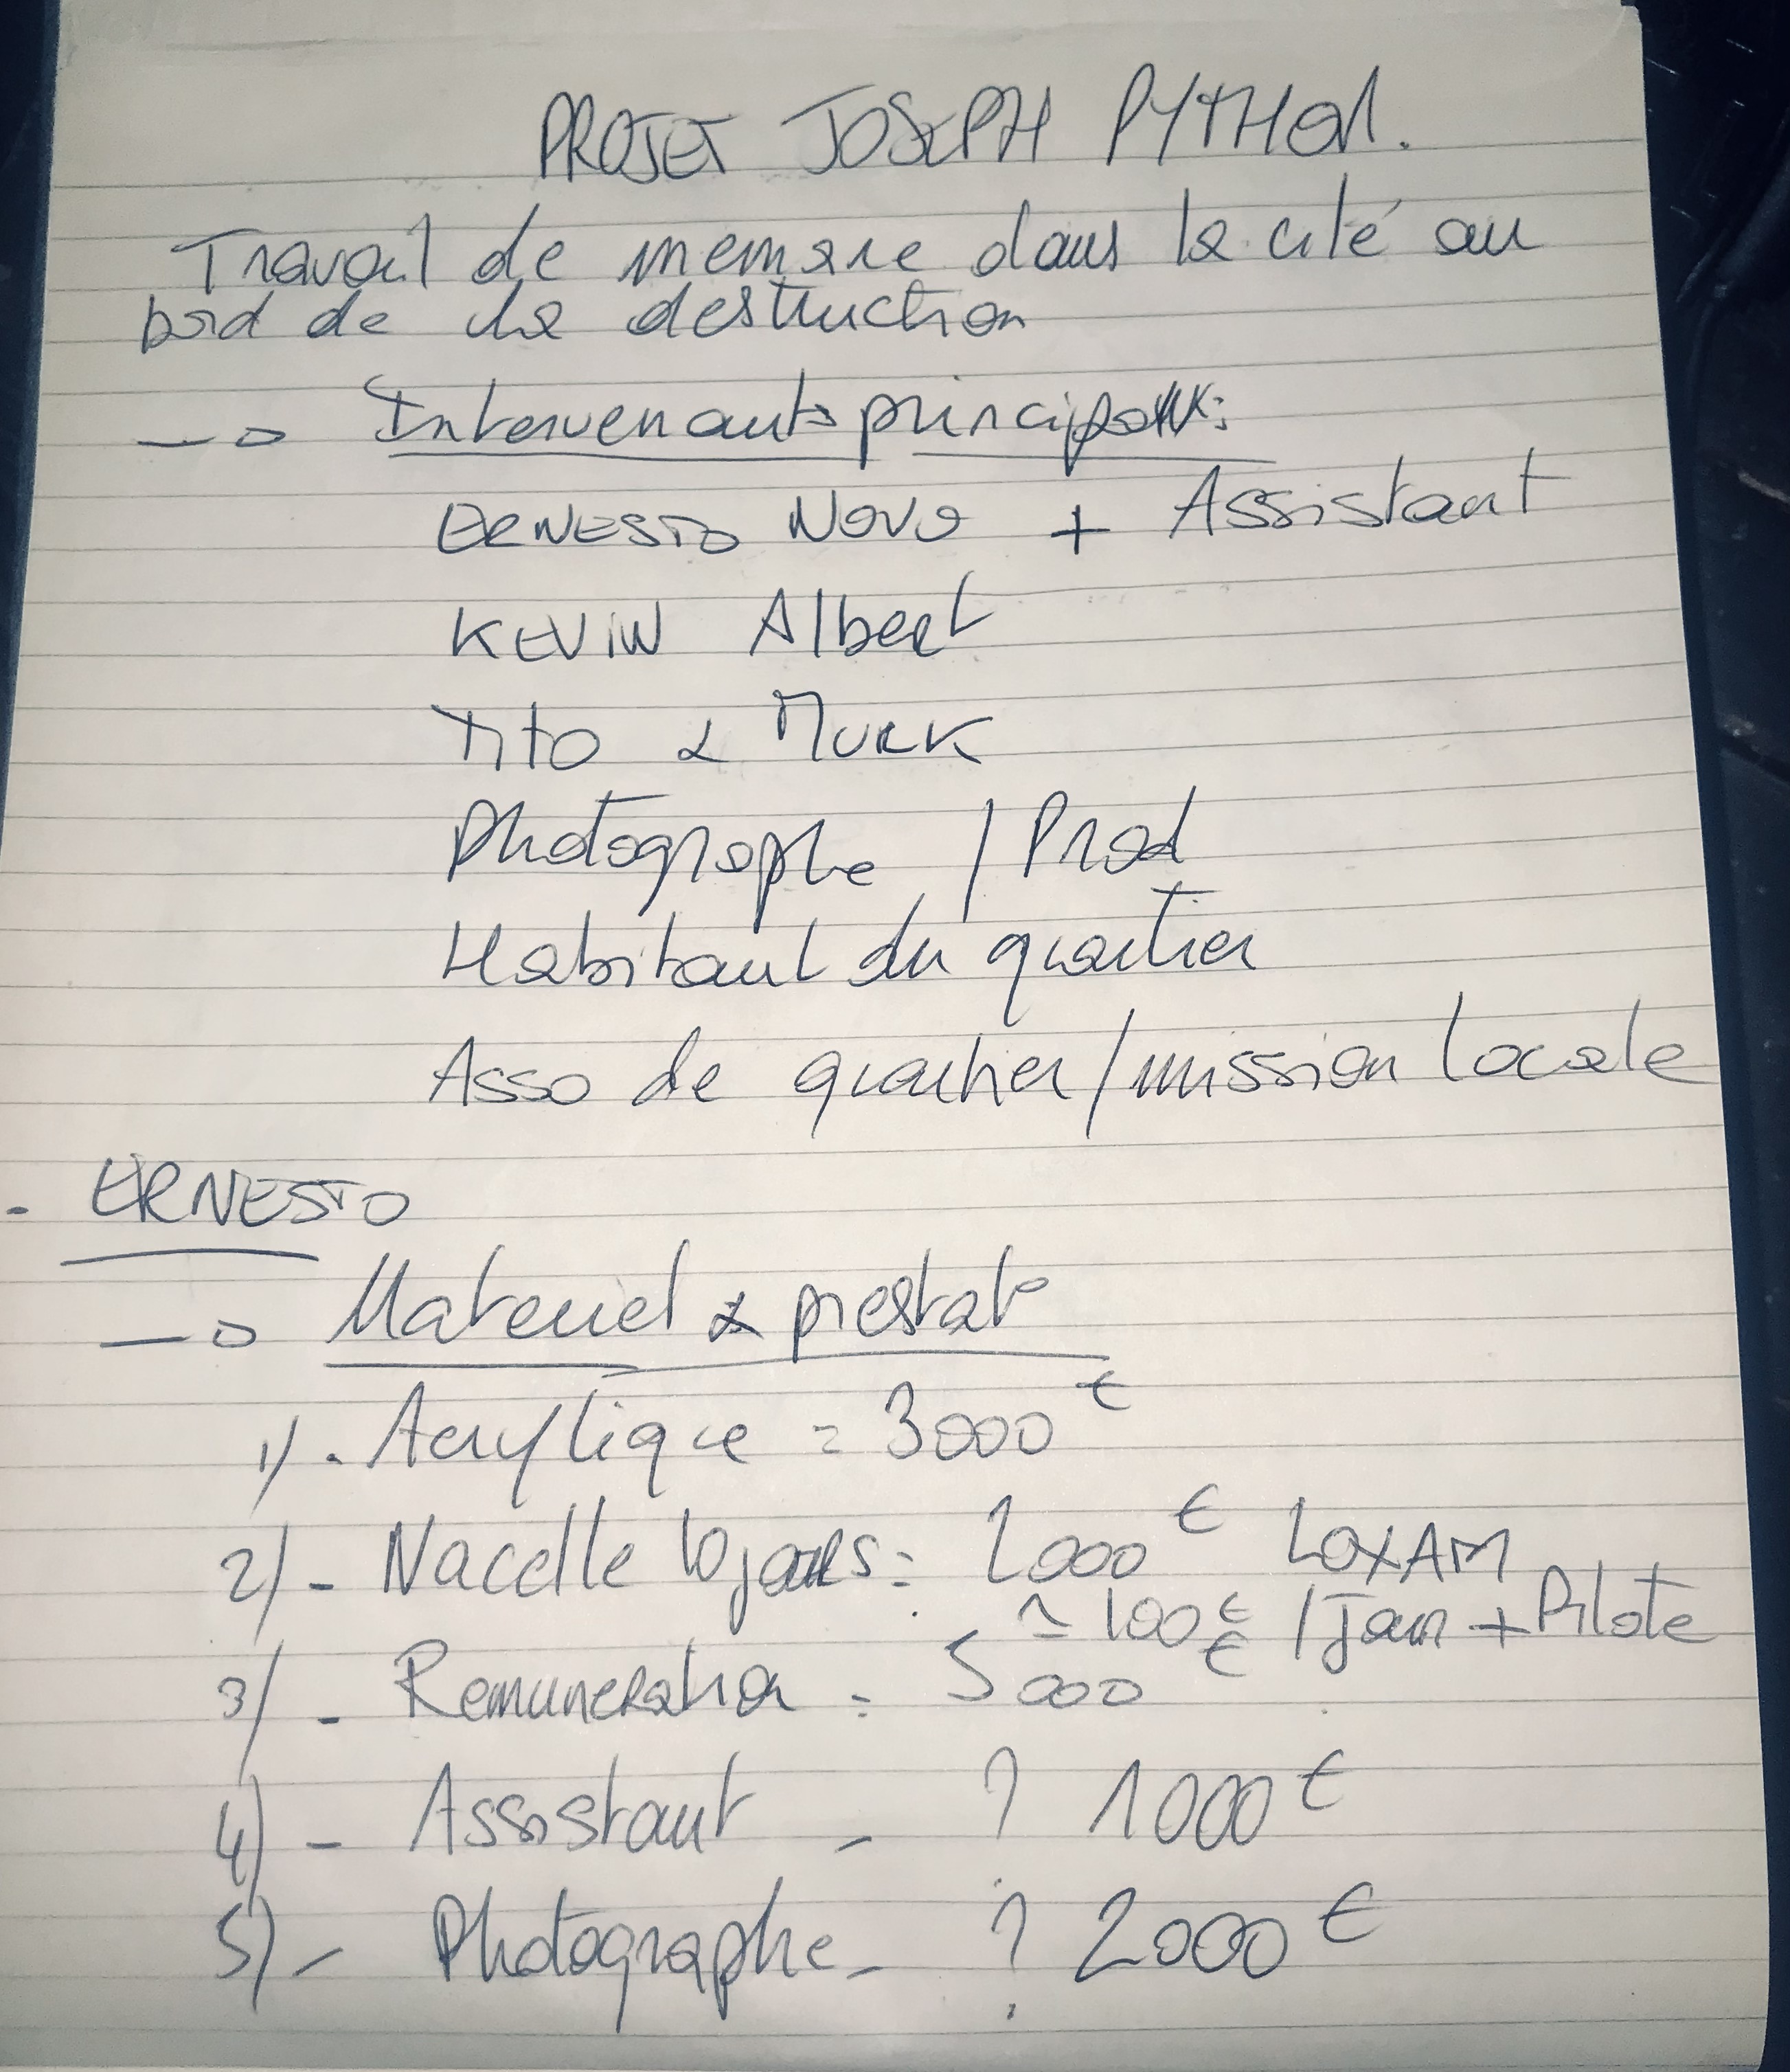 PROJET JOSEPH PYTHON.
Travail de memoire dans la cité au
bord de la destruction
→ Intervenants principaux:
ERNESTO NOVO + Assistant
KEVIN Albert
Tito & MURK
Photographe / Prod
Habitant du quartier
Asso de quartier/mission locale
- ERNESTO
→ Materiel & prestat°
1) - Acrylique = 3000€
2) - Nacelle 10 jours = 2000€ LOXAM
≃ 100€ / Jour + Pilote
3) - Remuneration = 5000€
4) - Assistant - ? 1000€
5) - Photographe - ? 2000€